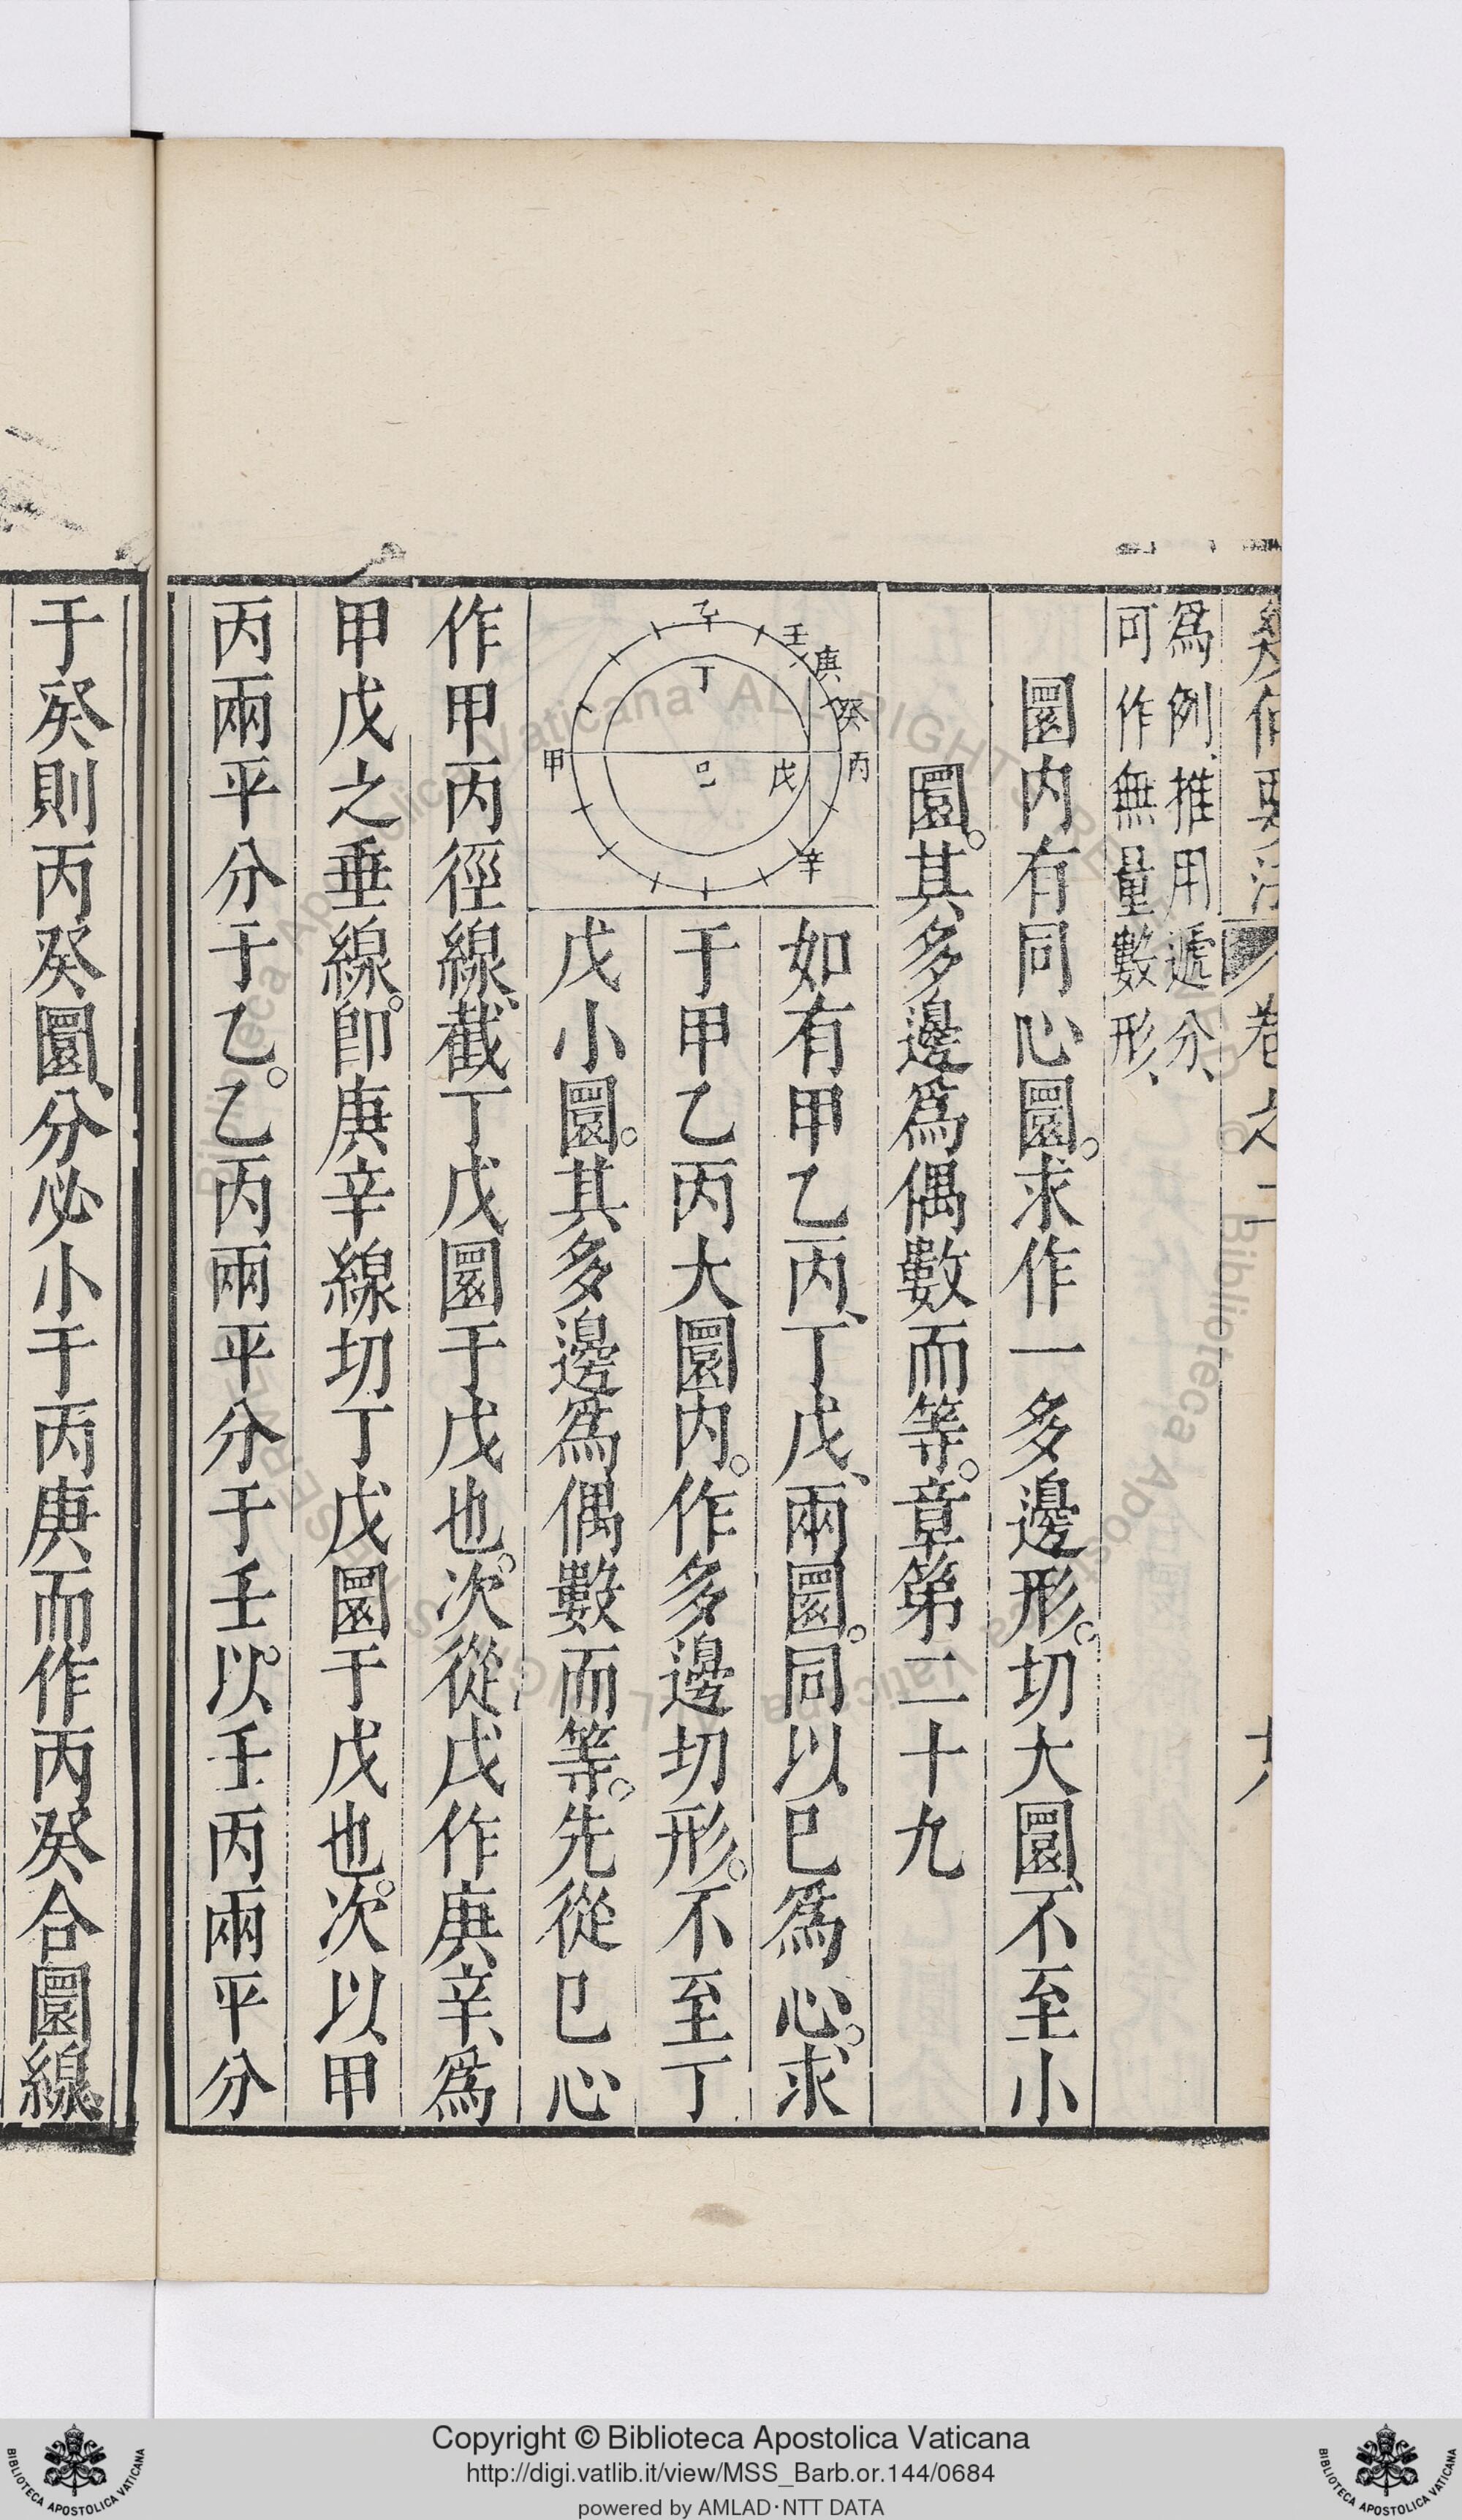 幾何要法
卷之
十八
爲例推用遞分、
可作無量數形、
圜内有同心圜。求作一多邊形。切大圜、不至小
圜。其多邊爲偶數而等。章第二十九
乙
壬
庚
癸
丁
甲
己
戊
丙
辛
如有甲乙丙、丁戊、兩圜。同以己爲心。求
于甲乙丙大圜内。作多邊切形。不至丁
戊小圜。其多邊爲偶數而等。先從己心
作甲丙徑線、截丁戊圜于戊也。次從戊作庚辛、爲
甲戊之垂線。卽庚辛線切丁戊圜于戊也。次以甲
丙兩平分于乙。乙丙兩平分于壬。以壬丙兩平分
于癸、則丙癸圜、分必小于丙庚、而作丙癸合圜線、
Copyright © Biblioteca Apostolica Vaticana
http://digi.vatlib.it/view/MSS_Barb.or.144/0684
powered by AMLAD·NTT DATA
BIBLIOTECA APOSTOLICA VATICANA
BIBLIOTECA APOSTOLICA VATICANA